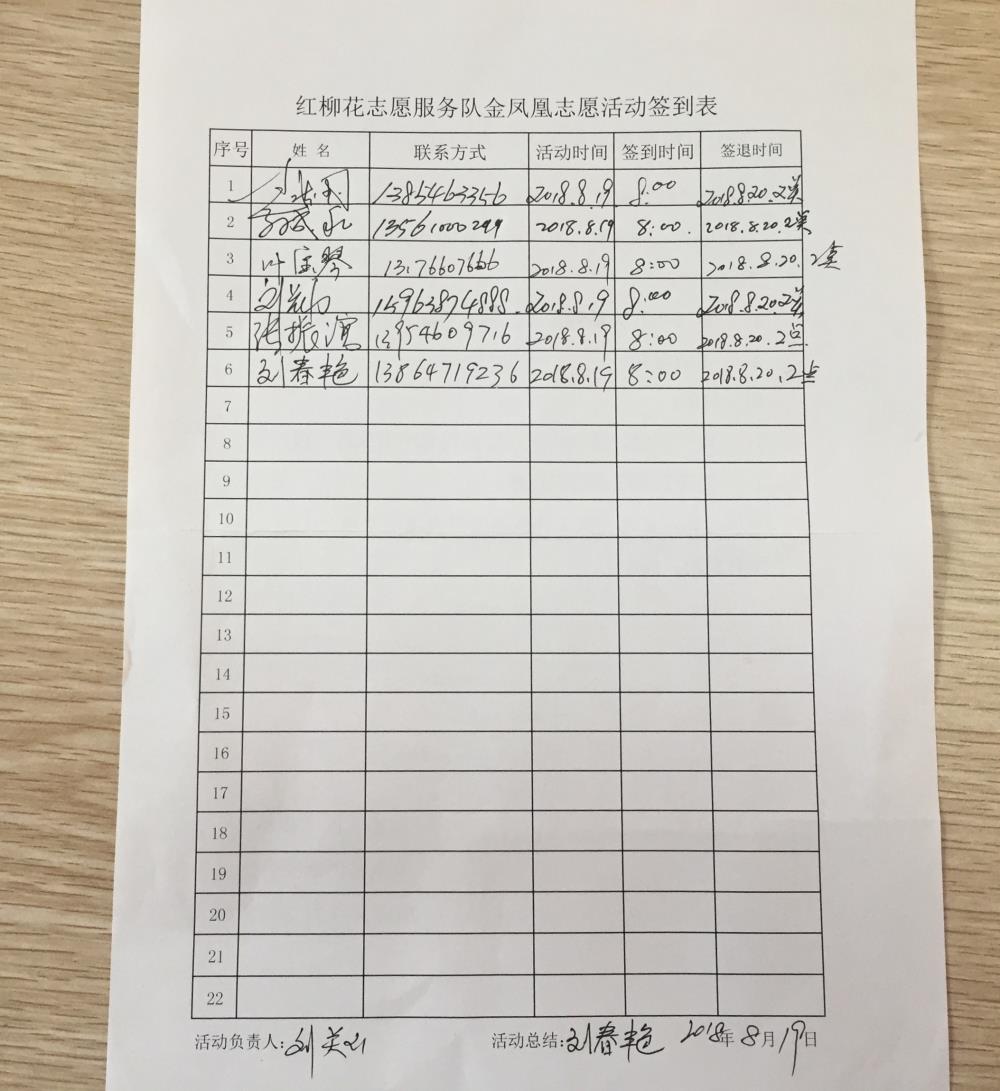 红柳花志愿服务队金凤凰志愿活动签到表
序号 姓名 联系方式 活动时间 签到时间 签退时间
1 13854633356 2018.8.19 8:00 2018.8.20.2点
2 13561000299 2018.8.19 8:00 2018.8.20.2点
3 叶宝琴 13176607666 2018.8.19 8:00 2018.8.20.2点
4 15963874888 2018.8.19 8:00 2018.8.20.2点
5 张振滨 13954609716 2018.8.19 8:00 2018.8.20.2点
6 刘春艳 13864719236 2018.8.19 8:00 2018.8.20.2点
7
8
9
10
11
12
13
14
15
16
17
18
19
20
21
22
活动负责人: 活动总结:刘春艳 2018年8月19日